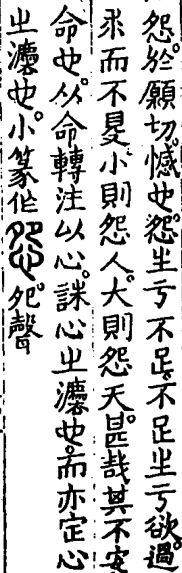 怨。於願切。憾也。怨生亏不足。不足生亏欲過。
求而不㝵。小則怨人。大則怨天。甚哉其不安
命也。从命轉注以心。誅心㞢灋也。而亦定心
㞢灋也。小篆作 夗聲